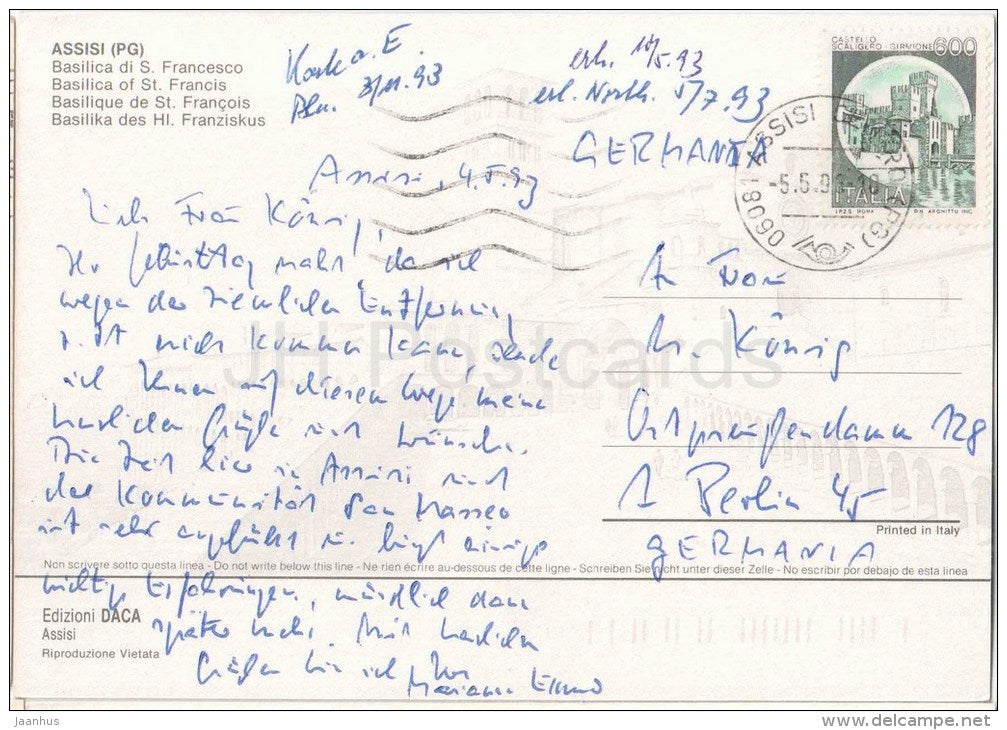 ASSISI (PG)
Basilica di S. Francesco
Basilica of St. Francis
Basilique de St. François
Basilika des Hl. Franziskus
Karte a. E.
Bln. 3/11.93
erh. 10/5.93
erl. North. 5/7.93
GERMANIA
CASTELLO
SCALIGERO - SIRMIONE 600
ITALIA
I.P.Z.S. ROMA
06081 ASSISI (PG)
-5.5.93
Assisi, 4.5.93
Liebe Frau König,
Ihr Geburtstag naht, da ich
wegen der ziemlichen Entfernung
nicht kommen kann, sende
ich Ihnen auf diesem Wege meine
herzlichen Grüße und Wünsche.
Die Zeit hier in Assisi und
der Kommunität San Masseo
ist sehr angefüllt u. birgt einige
wichtige Erfahrungen, mündlich dann
später mehr. Mit herzlichen
Grüßen bin ich Ihre
Marianne
An Frau
M. König
Ostpreußendamm 128
1 Berlin 45
GERMANIA
Printed in Italy
Non scrivere sotto questa linea - Do not write below this line - Ne rien écrire au-dessous de cette ligne - Schreiben Sie nicht unter dieser Zeile - No escribir por debajo de esta linea
Edizioni DACA
Assisi
Riproduzione Vietata
JH Postcards
http://jauneherne.delcampe.net
delcampe.net